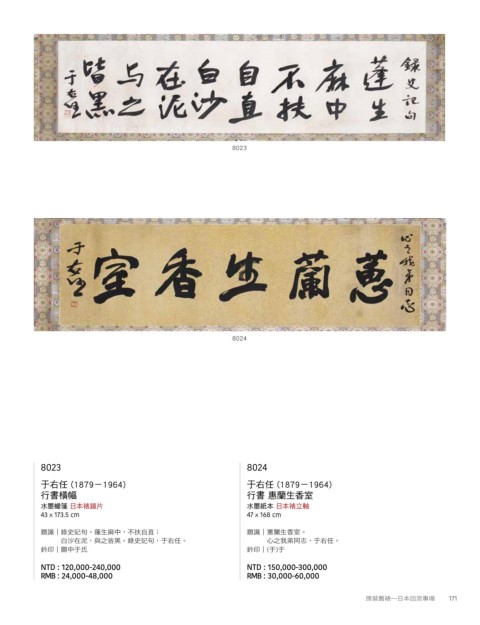 錄史記句
蓬生
麻中
不扶
自直
白沙
在泥
与之
皆黑
于右任
8023
心之我弟同志
蕙蘭生香室
于右任
8024
8023
于右任 (1879－1964)
行書橫幅
水墨蠟箋 日本裱鏡片
43 x 173.5 cm
題識｜錄史記句。蓬生麻中，不扶自直；
白沙在泥，與之皆黑。錄史記句，于右任。
鈐印｜關中于氏
NTD : 120,000-240,000
RMB : 24,000-48,000
8024
于右任 (1879－1964)
行書 惠蘭生香室
水墨紙本 日本裱立軸
47 x 168 cm
題識｜蕙蘭生香室。
心之我弟同志，于右任。
鈐印｜(于)于
NTD : 150,000-300,000
RMB : 30,000-60,000
原裝舊裱—日本回流專場 171